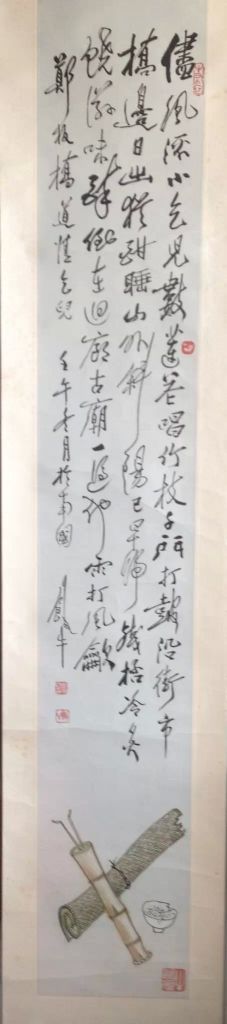 儘風流小乞兒數蓮花唱竹枝千門打鼓沿街市
橋邊日出猶酣睡山外斜陽已早歸殘杯冷炙
饒滋味醉倒在迴廊古廟一憑他雨打風吹
鄭板橋道情乞兒 壬午冬月於南國